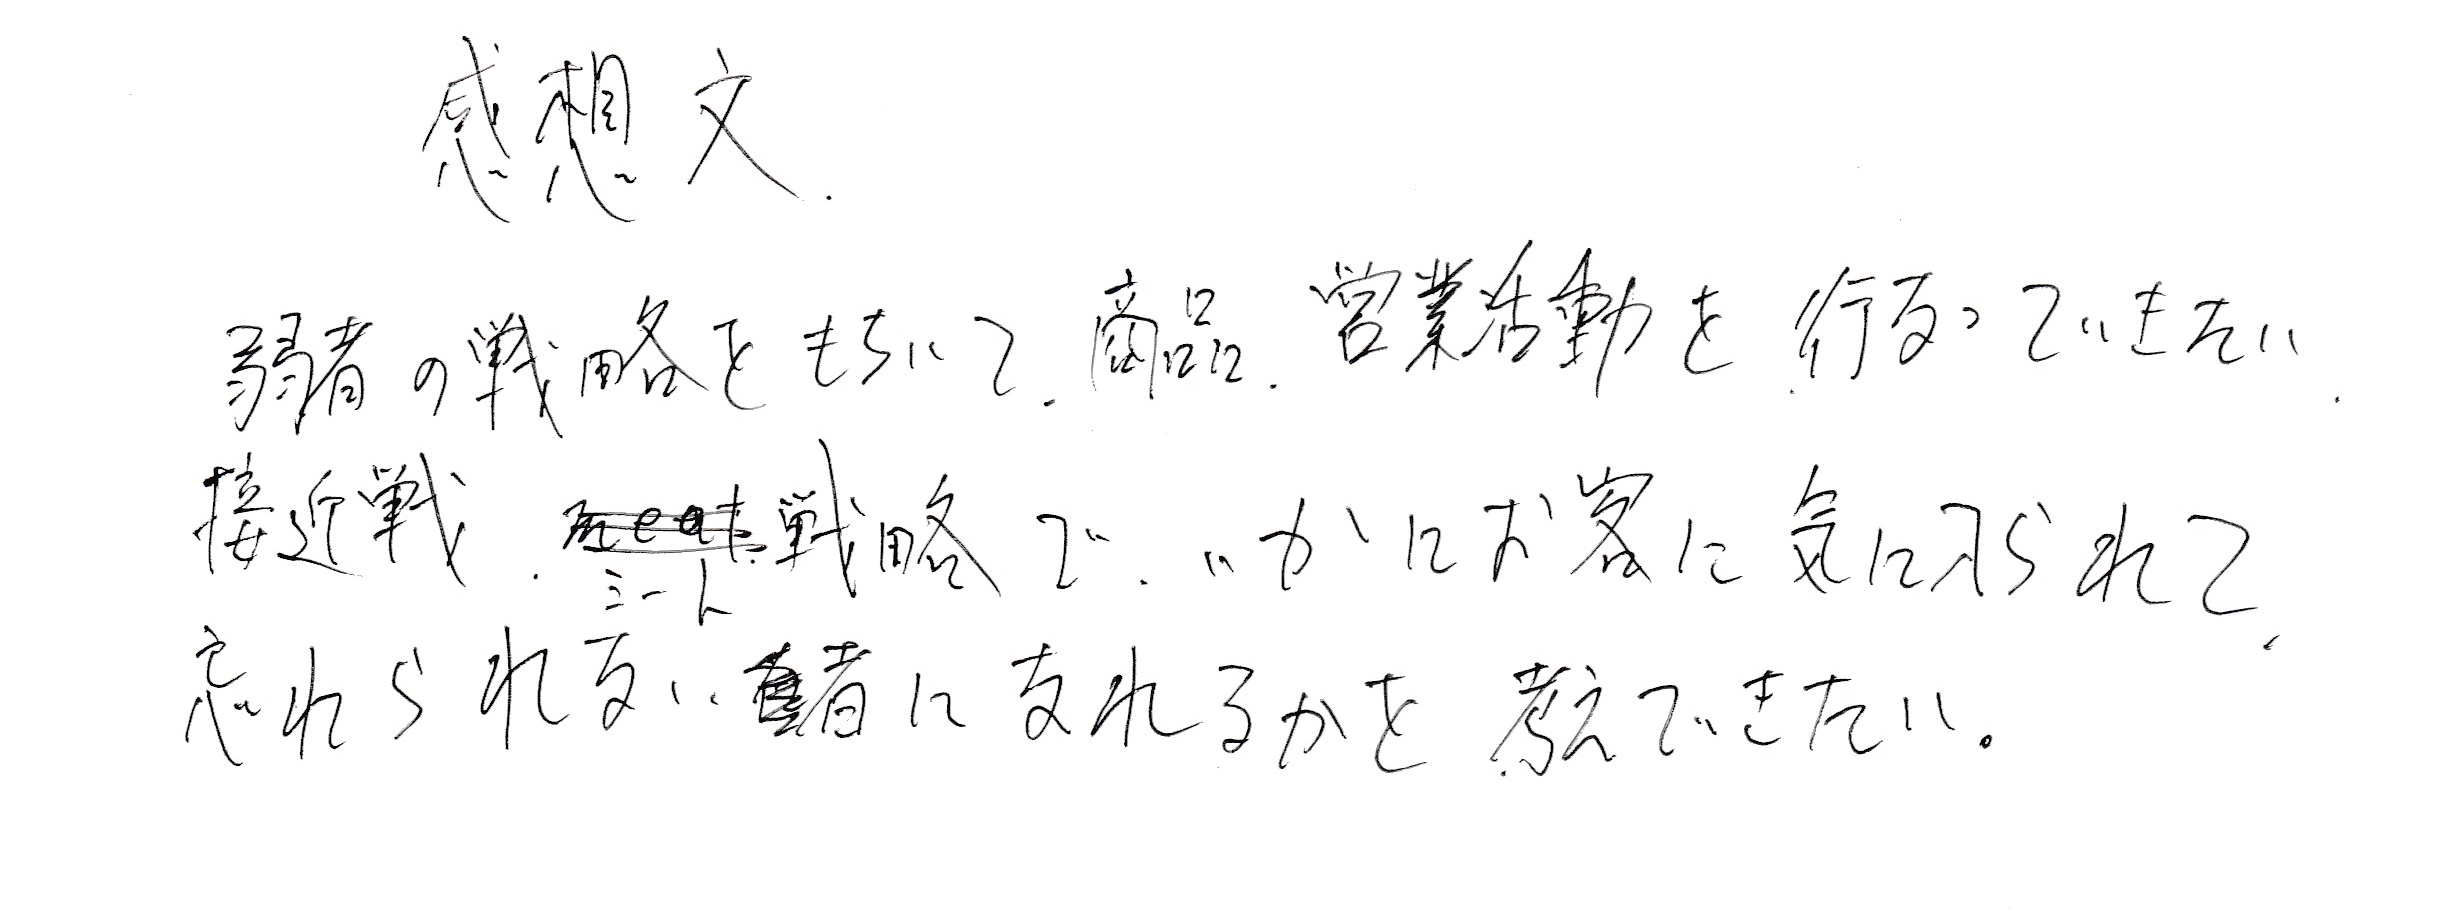 感想文.
弱者の戦略をもちいて、商品、営業活動を行なっていきたい.
接近戦、ミート戦略で、いかにお客に気に入られて、
忘れられない者になれるかを考えていきたい。